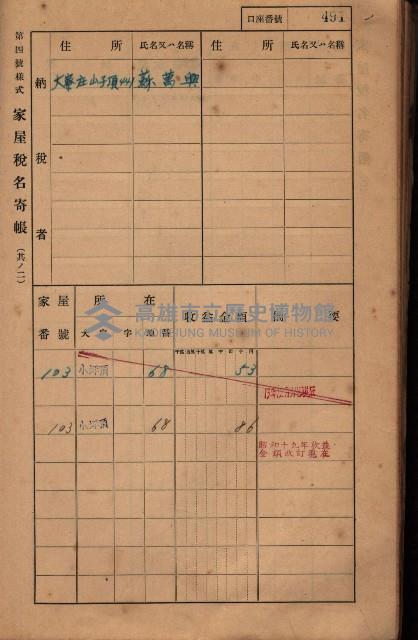 口座番號 491
第四號樣式 家屋稅名寄帳 (其ノ二)
納稅者
住所 氏名又ハ名稱 住所 氏名又ハ名稱
大寮庄山子頂441 蘇萬興
家屋番號 所在 收益金額 摘要
大字 字 地番
103 小坪頂 68 53
103 小坪頂 68 86
昭和十九年收益
金額改訂現在
高雄市立歷史博物館
KAOHSIUNG MUSEUM OF HISTORY